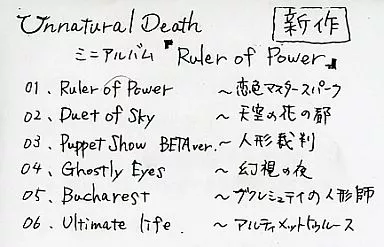 Unnatural Death 新作
ミニアルバム 『Ruler of Power』
01、Ruler of Power ～ 恋色マスタースパーク
02、Duet of Sky ～ 天空の花の都
03、Puppet Show BETA ver. ～ 人形裁判
04、Ghostly Eyes ～ 幻視の夜
05、Bucharest ～ ブクレシュティの人形師
06、Ultimate life. ～ アルティメットトゥルース